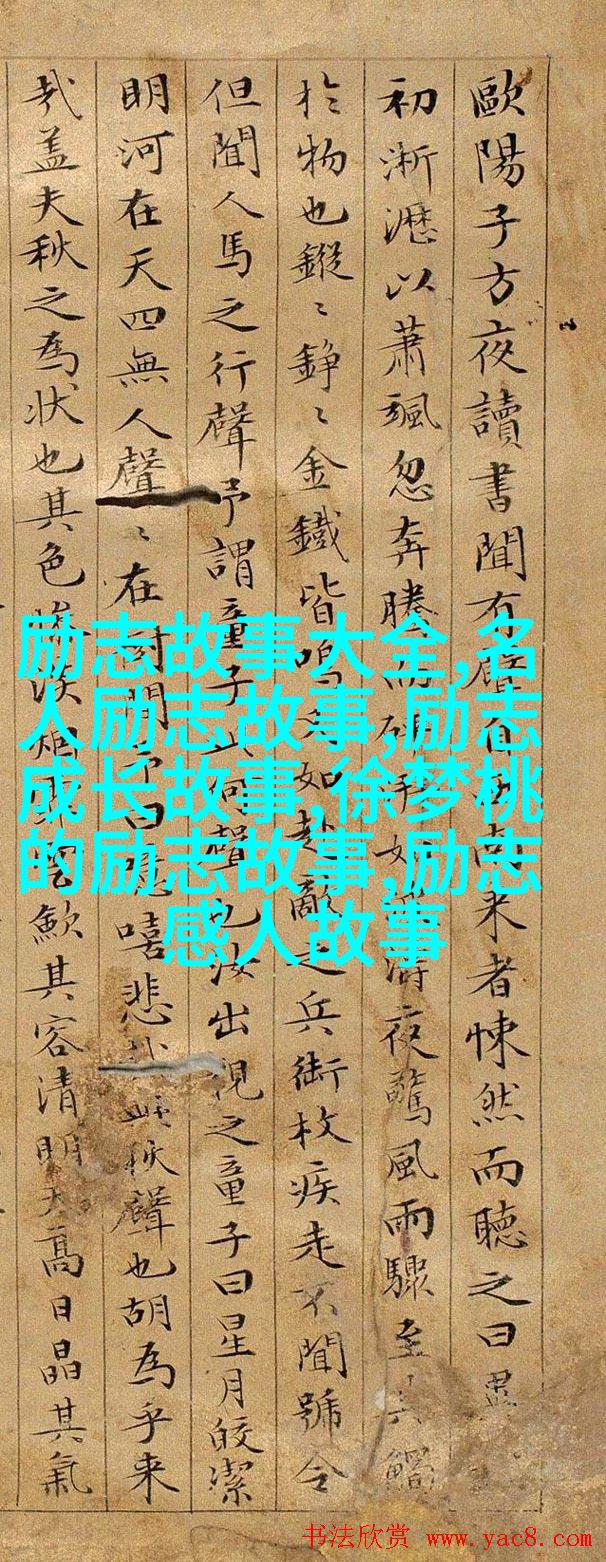 歐陽子方夜讀書聞有聲自南來者悚然而聽之曰異
初淅瀝以蕭颯忽奔騰而砰如濤夜驚風雨驟至其觸
於物也鏦〻錚〻金鐵皆鳴如赴敵之兵銜枚疾走不聞號令
但聞人馬之行聲予謂童子此何聲也汝出視之童子曰星月皎潔
明河在天四無人聲〻在樹間予曰噫嘻悲哉此秋聲也胡為乎來
哉盖夫秋之為狀也其色慘淡煙霏雲歛其容清明天高日晶其氣
励志故事大全,名
人励志故事,励志
成长故事,徐梦桃
的励志故事,励志
感人故事
书法欣赏 www.yac8.com